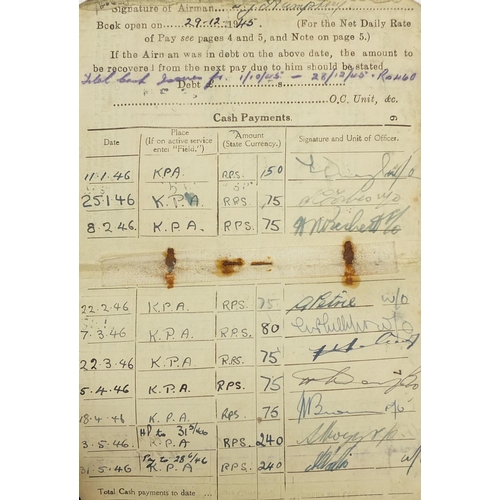 Signature of Airman
Book open on 29-12-1945. (For the Net Daily Rate
of Pay see pages 4 and 5, and Note on page 5.)
If the Airman was in debt on the above date, the amount to
be recovered from the next pay due to him should be stated.
Total cash Issues fr. 1/10/45 - 28/12/45.
Debt £ s.
O.C. Unit, &c.
Cash Payments.
6
Date Place (If on active service enter "Field.") Amount (State Currency.) Signature and Unit of Officer.
11.1.46 KPA RPS. 150 W/O
25.1.46 K.P.A RPS. 75
8.2.46. K.P.A. RPS. 75
22.2.46 K.P.A. RPS. 75 W/O
7.3.46 K.P.A. RPS. 80 W/O
22.3.46 K.P.A RPS. 75
5.4.46 K.P.A RPS 75
18.4.46 K.P.A Rps. 76
3.5.46. HP to 31/5/46 K.P.A RPS. 240
31.5.46 Pay to 28/6/46 K.P.A RPS. 240
Total Cash payments to date ...